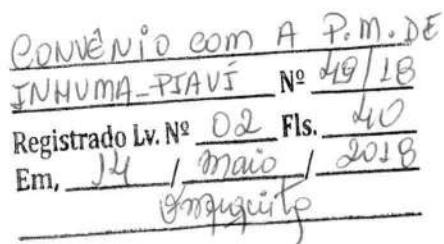 CONVÊNIO COM A P.M. DE
INHUMA-PIAUÍ Nº 49/18
Registrado Lv. Nº 02 Fls. 40
Em, 14 / Maio / 2018